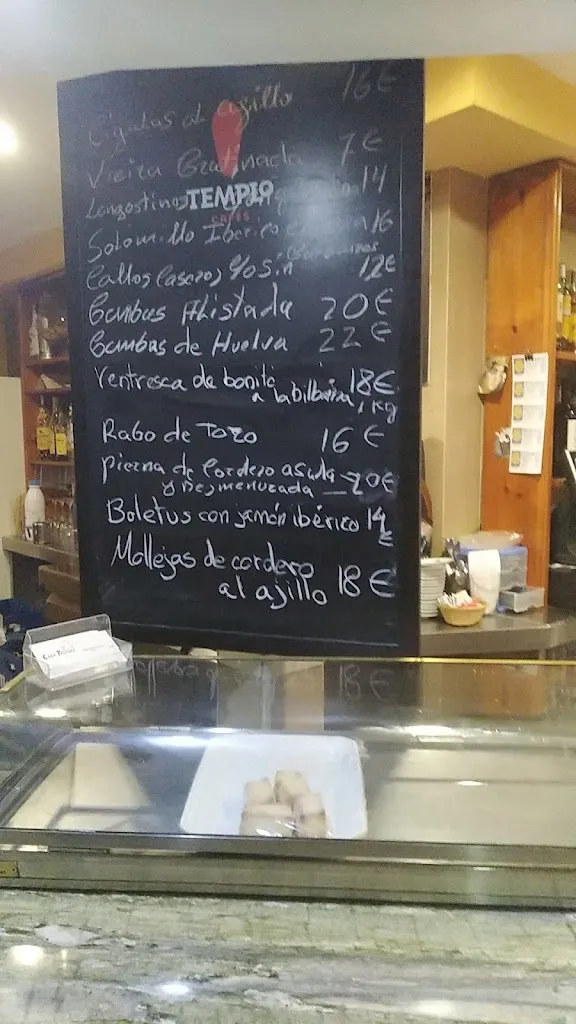 Cigalas al ajillo 16€
Vieira Gratinada 7€
TEMPIO
CAFÉS
Langostinos 14
Solomillo Ibérico 16
Callos Caseros y/o sin Garbanzos 12€
Gambas Alistada 20€
Gambas de Huelva 22€
Ventresca de bonito 18€
a la bilbaina 1 Kg
Rabo de Toro 16€
pierna de Cordero asada 20€
y Desmenuzada
Boletus con jamón ibérico 14
€
Mollejas de cordero
al ajillo 18€